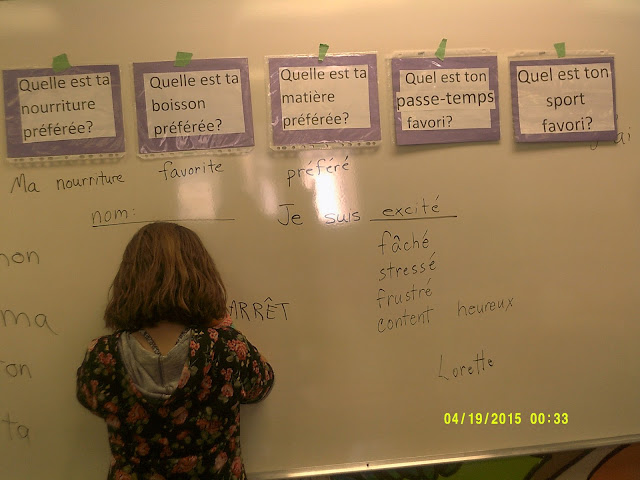 Quelle est ta
nourriture
préférée?
Quelle est ta
boisson
préférée?
Quelle est ta
matière
préférée?
Quel est ton
passe-temps
favori?
Quel est ton
sport
favori?
j'ai
Ma nourriture favorite préféré
nom: Je suis excité
fâché
stressé
frustré
content heureux
Lorette
non
ma
ARRÊT
ta
04/19/2015 00:33